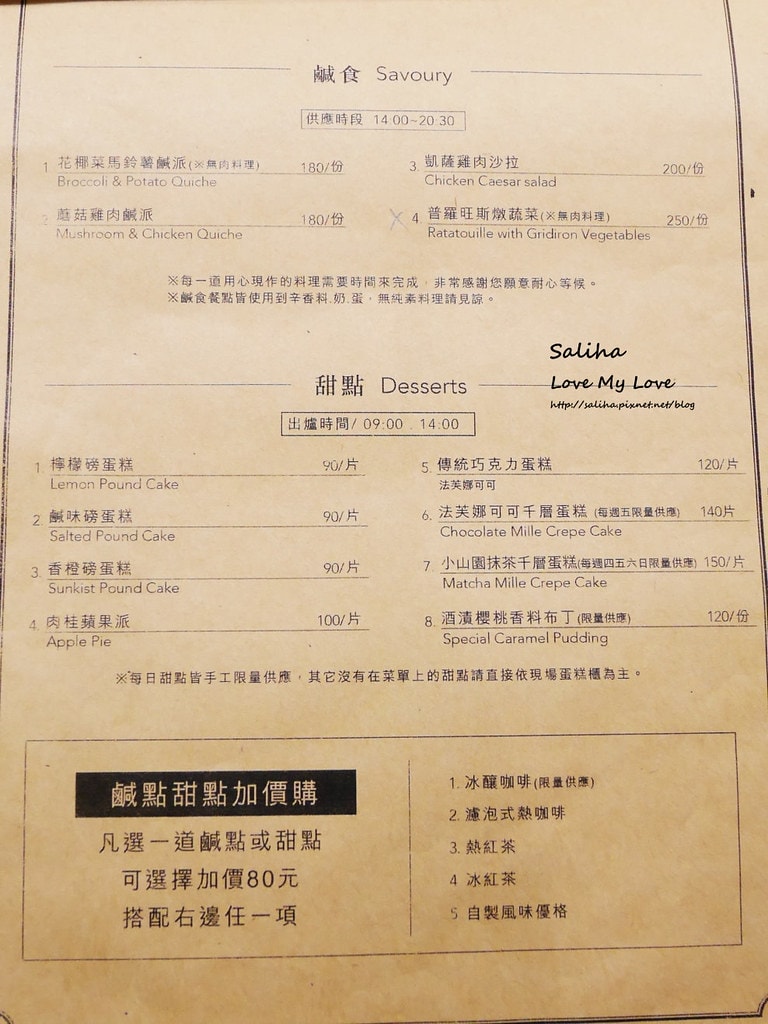 鹹食 Savoury
供應時段 14:00~20:30
1. 花椰菜馬鈴薯鹹派(※無肉料理) 180/份
Broccoli & Potato Quiche
2. 蘑菇雞肉鹹派 180/份
Mushroom & Chicken Quiche
3. 凱薩雞肉沙拉 200/份
Chicken Caesar salad
4. 普羅旺斯燉蔬菜(※無肉料理) 250/份
Ratatouille with Gridiron Vegetables
※每一道用心現作的料理需要時間來完成，非常感謝您願意耐心等候。
※鹹食餐點皆使用到辛香料.奶.蛋，無純素料理請見諒。
Saliha
Love My Love
http://saliha.pixnet.net/blog
甜點 Desserts
出爐時間/ 09:00 . 14:00
1. 檸檬磅蛋糕 90/片
Lemon Pound Cake
2. 鹹味磅蛋糕 90/片
Salted Pound Cake
3. 香橙磅蛋糕 90/片
Sunkist Pound Cake
4. 肉桂蘋果派 100/片
Apple Pie
5. 傳統巧克力蛋糕 120/片
法芙娜可可
6. 法芙娜可可千層蛋糕 (每週五限量供應) 140片
Chocolate Mille Crepe Cake
7. 小山園抹茶千層蛋糕(每週四五六日限量供應) 150/片
Matcha Mille Crepe Cake
8. 酒漬櫻桃香料布丁(限量供應) 120/份
Special Caramel Pudding
※每日甜點皆手工限量供應，其它沒有在菜單上的甜點請直接依現場蛋糕櫃為主。
鹹點甜點加價購
凡選一道鹹點或甜點
可選擇加價80元
搭配右邊任一項
1. 冰釀咖啡(限量供應)
2. 濾泡式熱咖啡
3. 熱紅茶
4 冰紅茶
5 自製風味優格